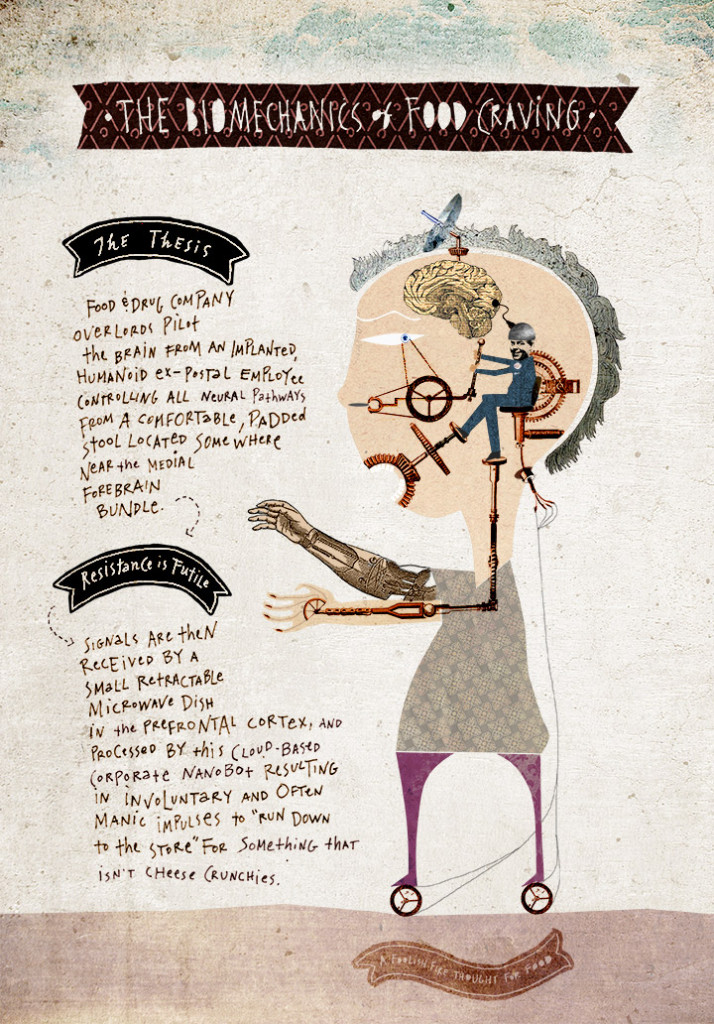 ·THE BIOMECHANICS of FOOD CRAVING·
THE THESIS
FOOD & DRUG COMPANY
OVERLORDS PILOT
the BRAIN FROM AN IMPLANTED,
HUMANOID ex-POSTAL EMPLOYEE
CONTROLLING ALL NEURAL PATHWAYS
FROM A COMFORTABLE, PADDED
STOOL LOCATED SOMEWHERE
NEAR the MEDIAL
FOREBRAIN
BUNDLE.
Resistance is Futile
SIGNALS ARE then
RECEIVED BY A
SMALL RETRACTABLE
MICROWAVE DISH
IN the PREFRONTAL CORTEX, AND
PROCESSED BY this CLOUD-BASED
CORPORATE NANOBOT RESULTING
IN INVOLUNTARY AND OFTEN
MANIC IMPULSES to "RUN DOWN
to the STORE" FOR SOMETHING tHAT
ISN'T CHEESE CRUNCHIES.
A FOOLISH FIRE THOUGHT FOR FOOD